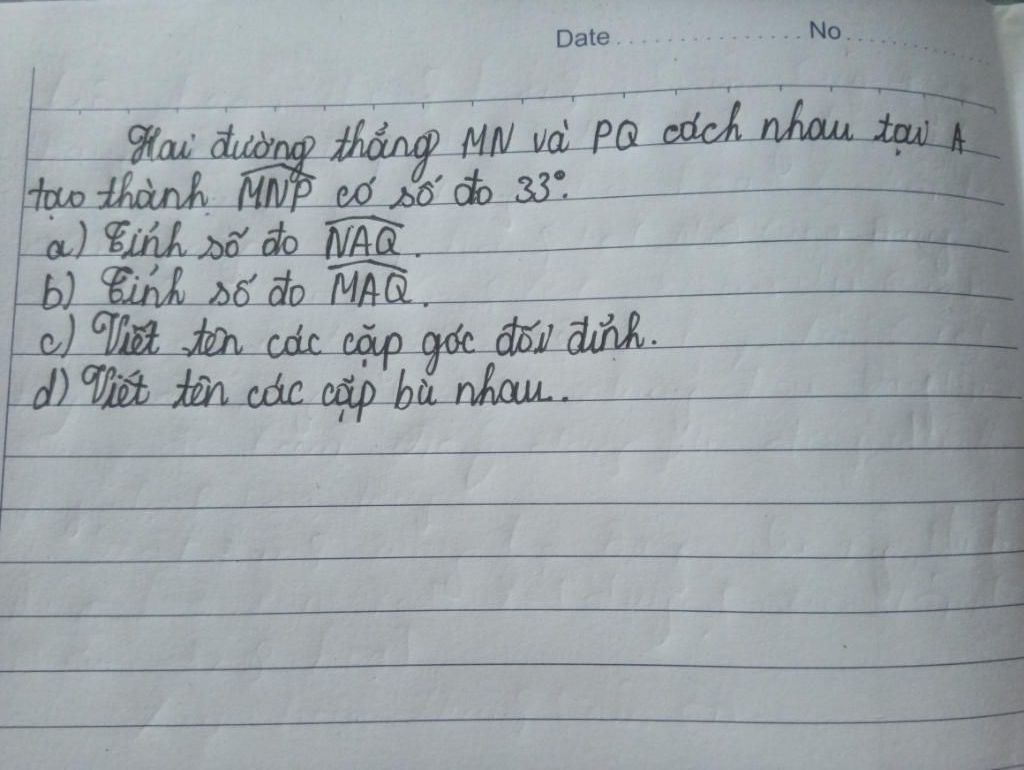 Date ................ No ................
Hai đường thẳng MN và PQ cách nhau tại A
tạo thành. MNP có số đo 33°.
a) Tính số đo NAQ.
b) Tính số đo MAQ.
c) Viết tên các cặp góc đối đỉnh.
d) Viết tên các cặp bù nhau.